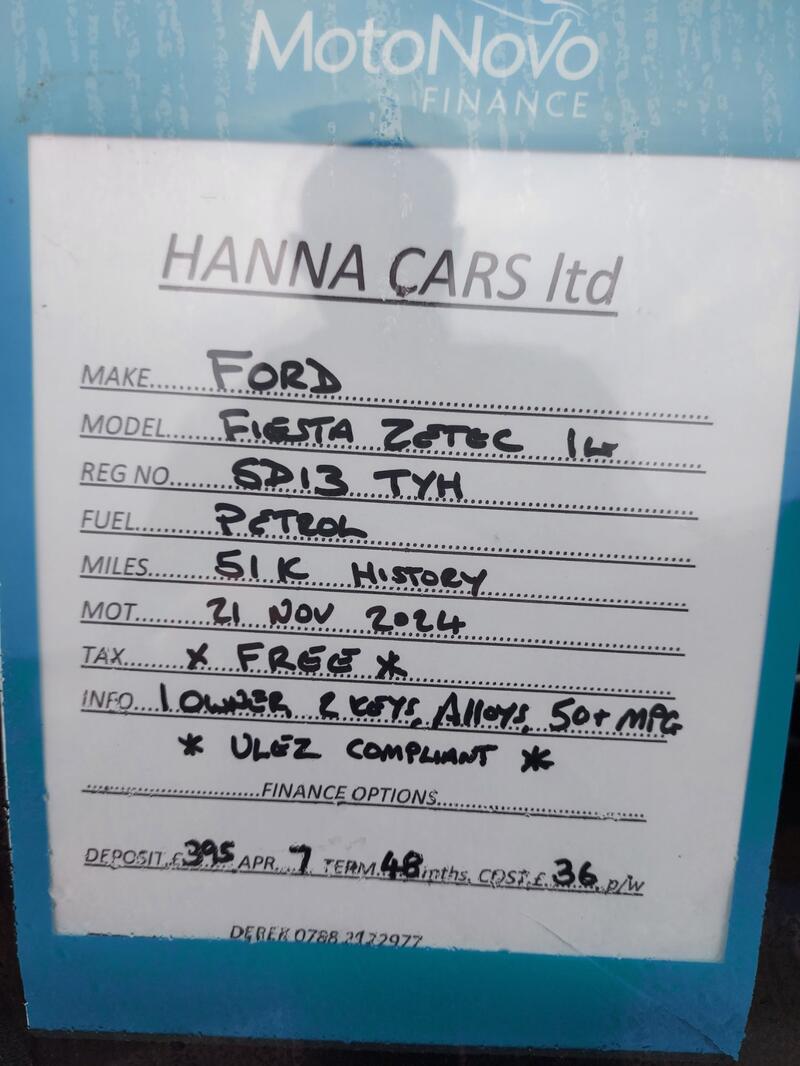 MotoNovo
FINANCE
HANNA CARS ltd
MAKE...... FORD
MODEL.... FIESTA ZETEC
REG NO.... SD13 TYH
FUEL...... PETROL
MILES..... 51K HISTORY
MOT..... 21 NOV 2024
TAX..... * FREE *
INFO... 1 OWNER 2 KEYS, Alloys, 50+ MPG
* ULEZ COMPLIANT *
FINANCE OPTIONS
DEPOSIT.£395 APR. 7 TERM.48 mths. COST.£. 36 p/w
DEREK 0788